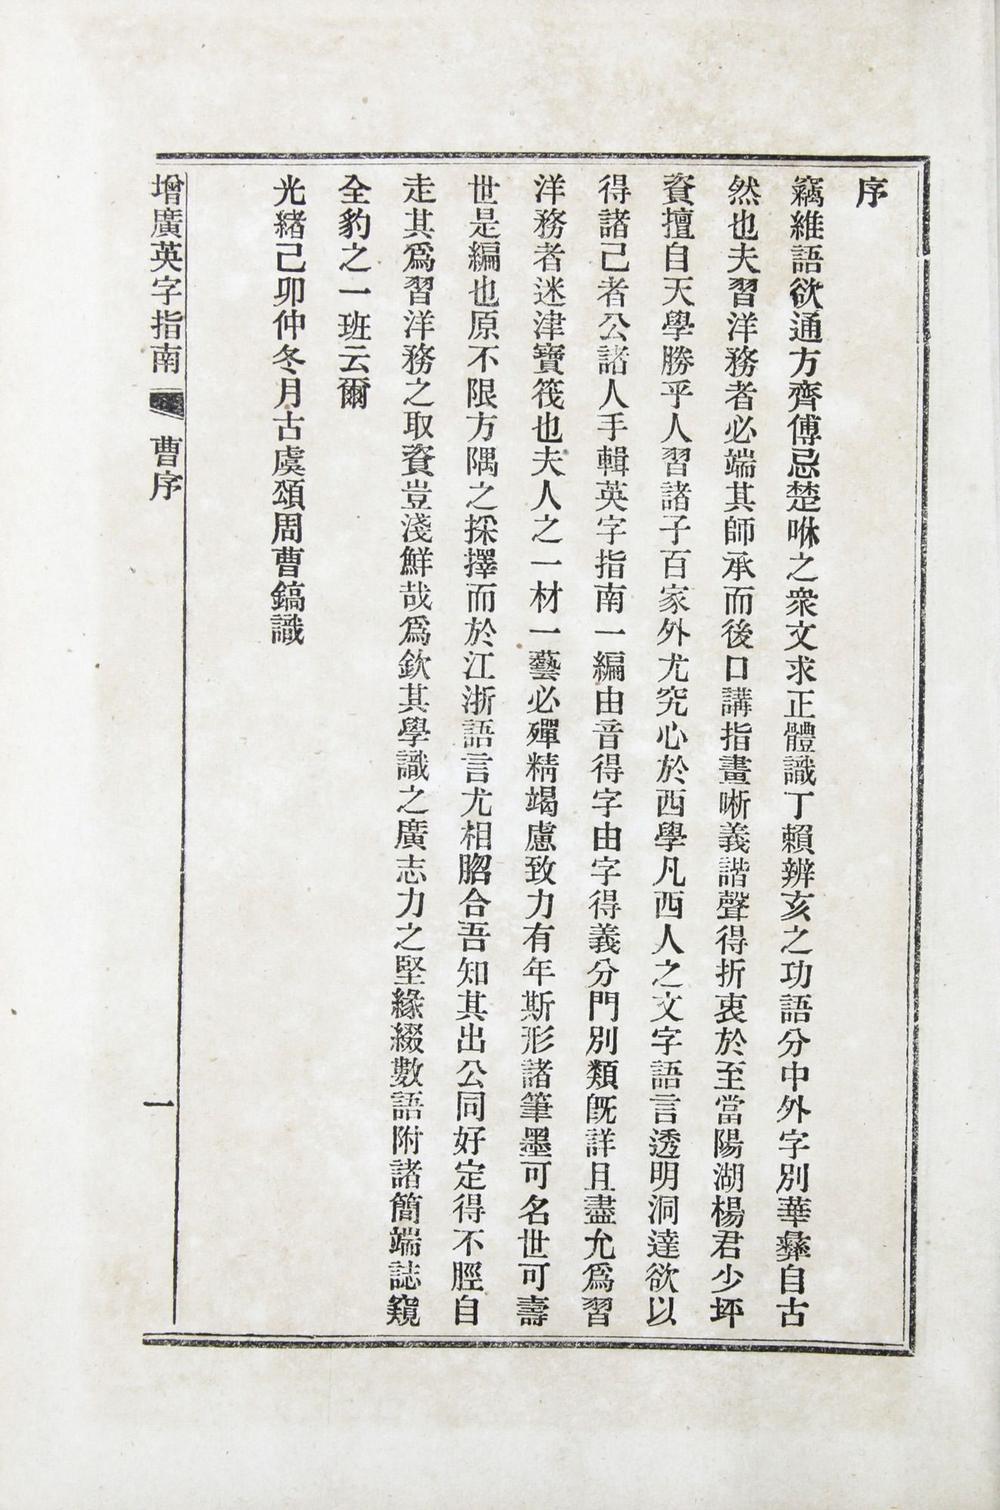 序
竊維語欲通方齊傅忌楚咻之衆文求正體識丁賴辨亥之功語分中外字別華彝自古
然也夫習洋務者必端其師承而後口講指畫晰義諧聲得折衷於至當陽湖楊君少坪
資擅自天學勝乎人習諸子百家外尤究心於西學凡西人之文字語言透明洞達欲以
得諸己者公諸人手輯英字指南一編由音得字由字得義分門別類旣詳且盡允爲習
洋務者迷津寶筏也夫人之一材一藝必殫精竭慮致力有年斯形諸筆墨可名世可壽
世是編也原不限方隅之採擇而於江浙語言尤相脗合吾知其出公同好定得不脛自
走其爲習洋務之取資豈淺鮮哉爲欽其學識之廣志力之堅緣綴數語附諸簡端誌窺
全豹之一班云爾
光緒己卯仲冬月古虞頌周曹鎬識
增廣英字指南 曹序 一